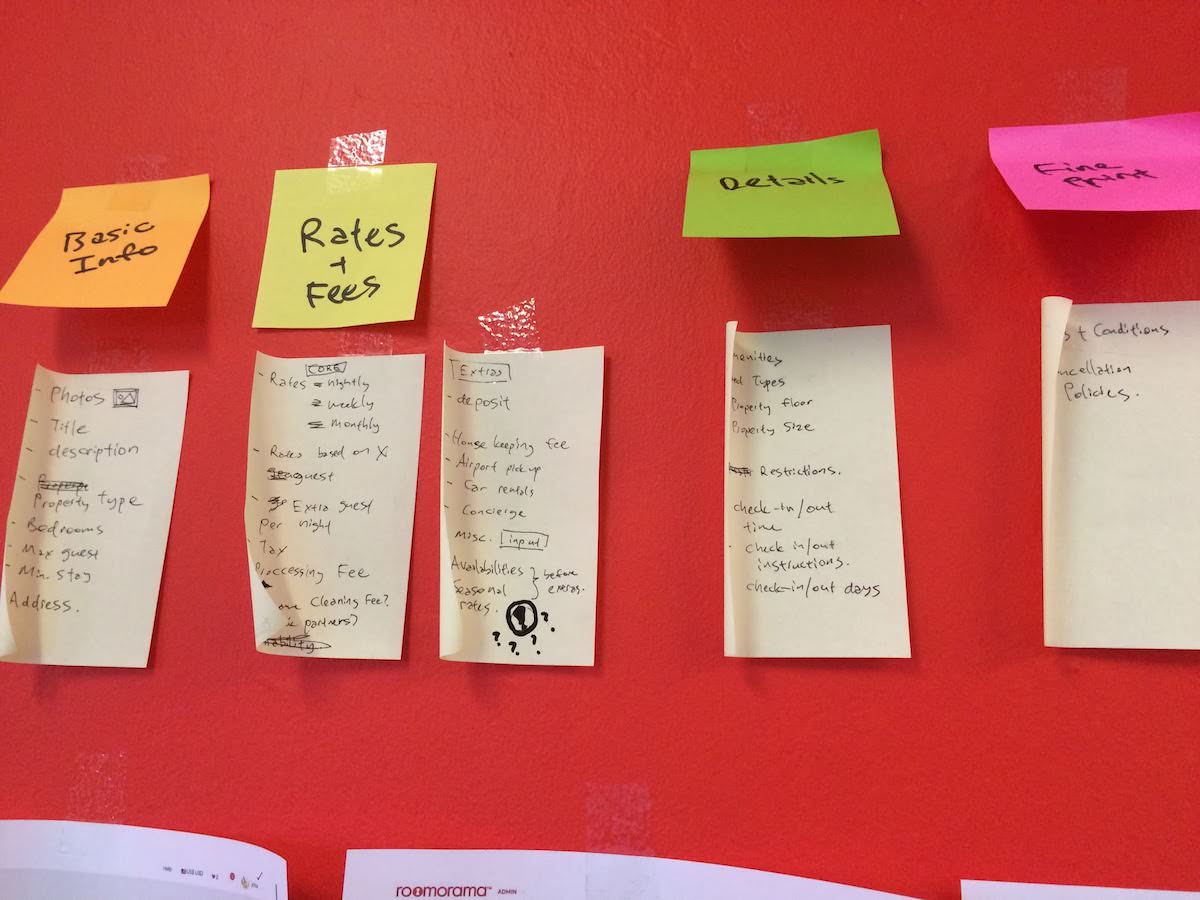 Basic
Info
Rates
+
Fees
Details
Fine
Print
- Photos
- Title
- description
- Property type
- Bedrooms
- Max guest
- Min. stay
Address.
CORE
- Rates = nightly
= weekly
= monthly
- Rates based on X
guest
- Extra guest
per night
- Tax
Proccessing Fee
Cleaning Fee?
partners?
Extras
- deposit
- House keeping fee
- Airport pick up
- Car rentals
- Concierge
Misc. input
Availabilities } before
Seasonal } extras.
rates.
? ? ? ? ?
menities
ed Types
Property floor
Property Size
Restrictions.
check-in/out
time
- check in/out
instructions.
check-in/out days
s + Conditions
ncellation
Policies.
Help
roomorama™ ADMIN